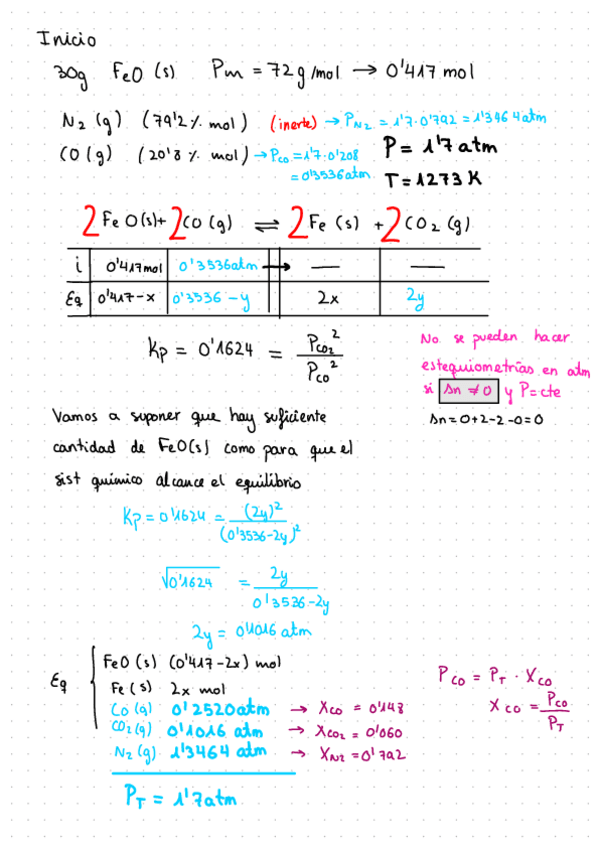 Inicio
30g FeO (s) Pm = 72 g/mol → 0'417 mol
N₂ (g) (79'2 % mol) (inerte) → P_N₂ = 1'7·0'792 = 1'3464 atm
CO (g) (20'8 % mol) → P_CO = 1'7·0'208 P = 1'7 atm
= 0'3536 atm T = 1273 K
2 FeO(s) + 2 CO (g) ⇌ 2 Fe (s) + 2 CO₂ (g)
i 0'417 mol 0'3536 atm → — —
Eq 0'417-x 0'3536 -y 2x 2y
Kp = 0'1624 = P_CO₂² / P_CO²
No se pueden hacer
estequiometrías en atm
si Δn ≠ 0 y P=cte
Δn = 0+2-2-0=0
Vamos a suponer que hay suficiente
cantidad de FeO(s) como para que el
sist químico alcance el equilibrio
Kp = 0'1624 = (2y)² / (0'3536-2y)²
√0'1624 = 2y / 0'3536-2y
2y = 0'1016 atm
Eq
FeO (s) (0'417-2x) mol
Fe (s) 2x mol
CO (g) 0'2520 atm → X_CO = 0'148
CO₂ (g) 0'1016 atm → X_CO₂ = 0'060
N₂ (g) 1'3464 atm → X_N₂ = 0'792
P_T = 1'7 atm
P_CO = P_T · X_CO
X_CO = P_CO / P_T